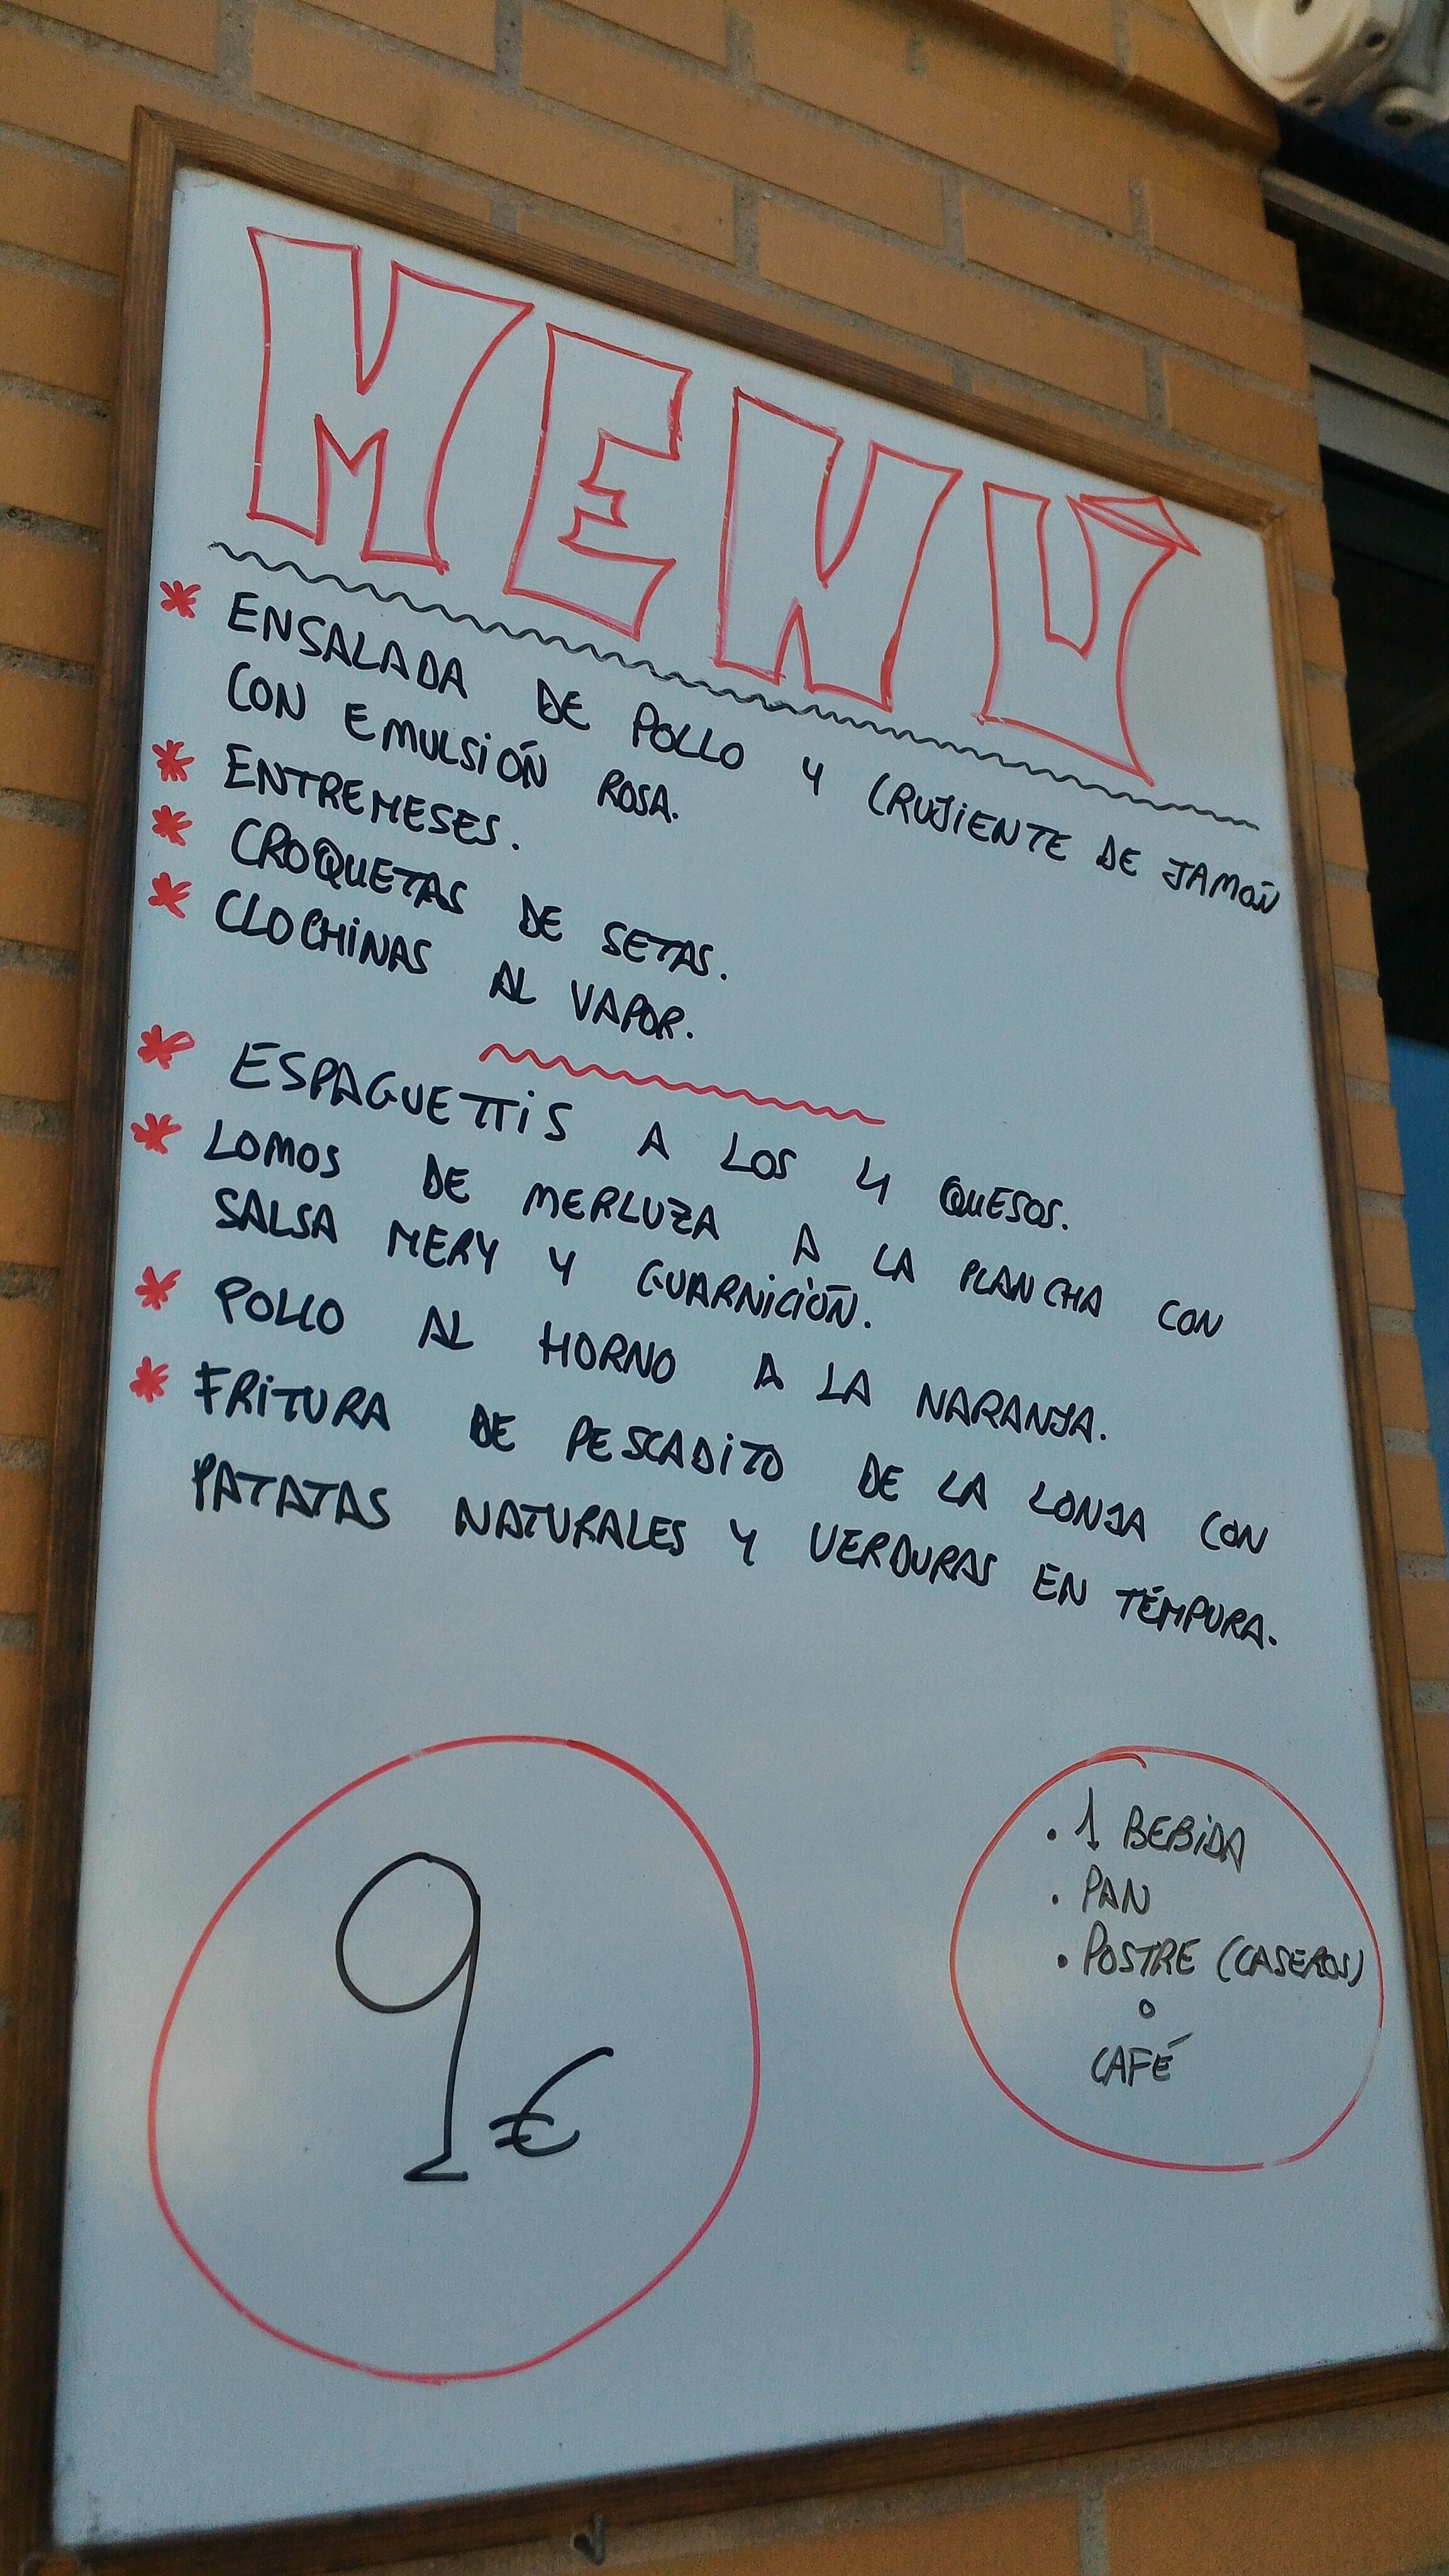 MENÚ
* ENSALADA DE POLLO Y CRUJIENTE DE JAMÓN
CON EMULSIÓN ROSA.
* ENTREMESES.
* CROQUETAS DE SETAS.
* CLOCHINAS AL VAPOR.
* ESPAGUETTIS A LOS 4 QUESOS.
* LOMOS DE MERLUZA A LA PLANCHA CON
SALSA MERY Y GUARNICIÓN.
* POLLO AL HORNO A LA NARANJA.
* FRITURA DE PESCADITO DE LA LONJA CON
PATATAS NATURALES Y VERDURAS EN TÉMPURA.
9€
• 1 BEBIDA
• PAN
• POSTRE (CASEROS)
o
CAFÉ